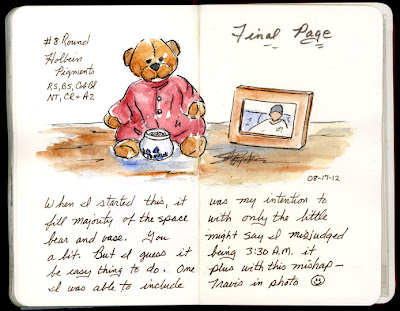 #8 Round
Holbein
Pigments
RS, BS, CobBl
NT, CR + AZ
Final Page
08-17-12
When I started this, it was my intention to
fill majority of the space with only the little
bear and vase. You might say I misjudged
a bit. But I guess it being 3:30 A.M. it
be easy thing to do. One plus with this mishap —
I was able to include Travis in photo ☺